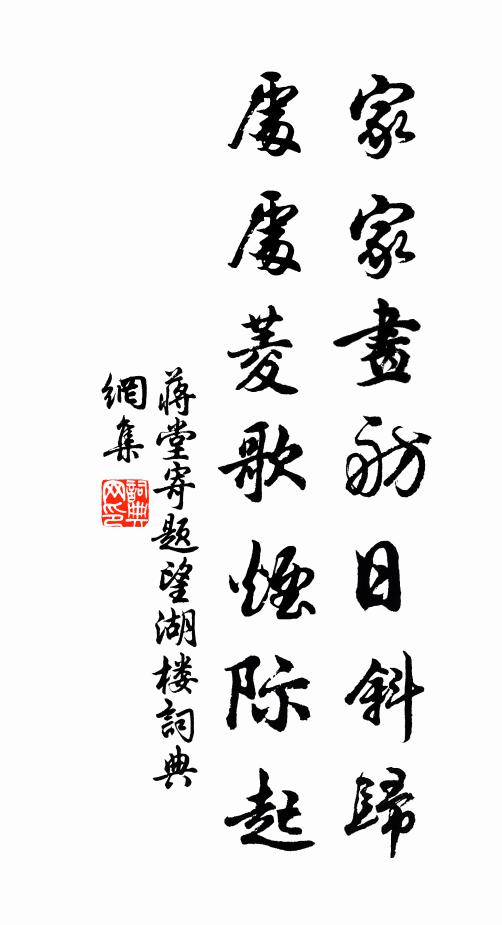 家家畫舫日斜歸
處處菱歌煙际起
蔣堂寄題望湖楼詞典
網集
詞典
网印